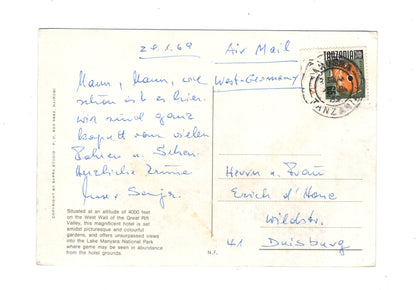 28.1.69
Air Mail
West-Germany
Tanzania
Mann, Mann, wie
schön ist es hier.
wir sind ganz
kaputt vom vielen
Fahren u. Sehen.
Herzliche Grüße
Herrn u. Frau
Erich d'Hone
Wildstr.
41 Duisburg
Situated at an altitude of 4000 feet
on the West Wall of the Great Rift
Valley, this magnificent hotel is set
amidst picturesque and colourful
gardens, and offers unsurpassed views
into the Lake Manyara National Park
where game may be seen in abundance
from the hotel grounds.
N.7.
COPYRIGHT BY SAPRA STUDIO P. O. BOX NAIROBI